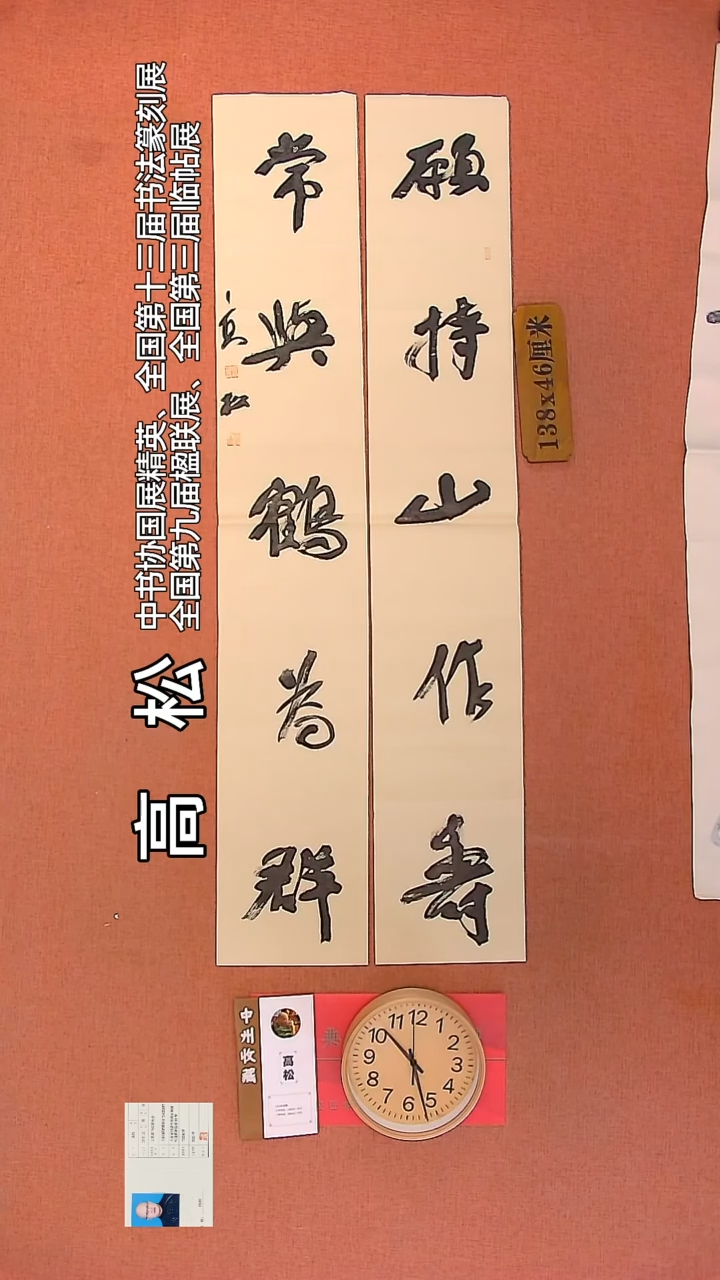 中书协国展精英、全国第十三届书法篆刻展
全国第九届楹联展、全国第三届临帖展
高 松
願持山作壽
常與鶴為群
138x46厘米
高松
12
1
2
3
4
5
6
7
8
9
10
11